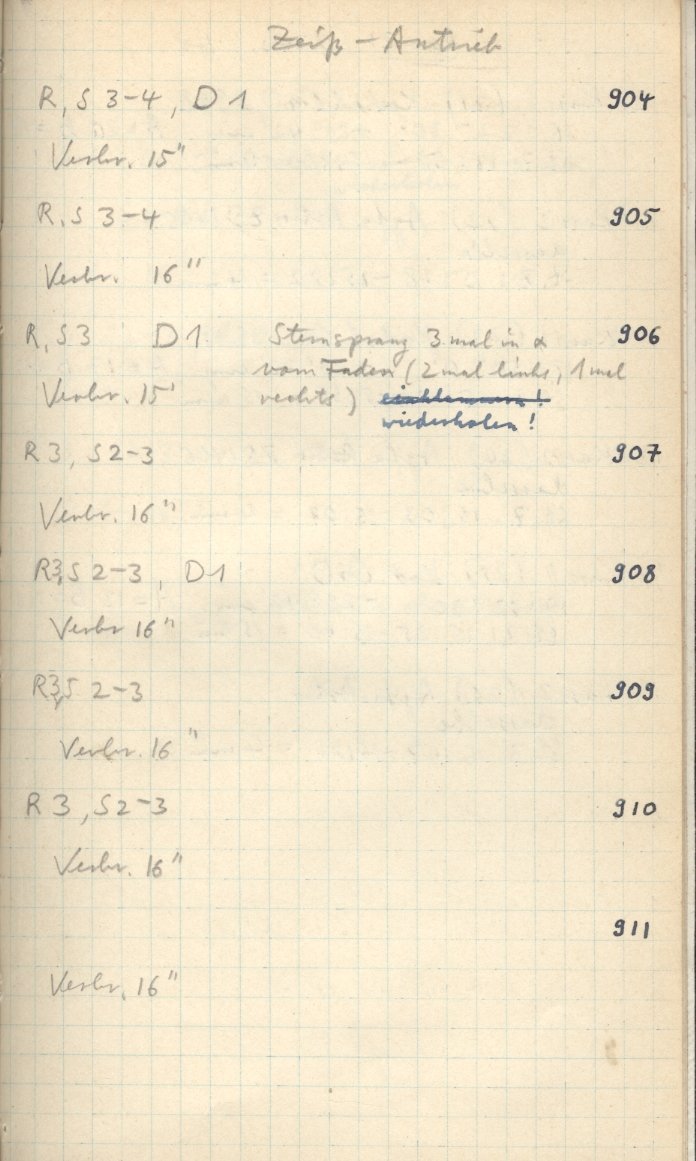 Zeiß-Antrieb
R, S 3-4, D 1 904
Verbr. 15"
R, S 3-4 905
Verbr. 16"
R, S 3 D 1 Stern sprang 3 mal in α 906
vom Faden (2 mal links, 1 mal
Verbr. 15' rechts) einklammern!
wiederholen!
R 3, S 2-3 907
Verbr. 16"
R3, S 2-3, D 1 908
Verbr 16"
R3, S 2-3 909
Verbr. 16"
R 3, S 2-3 910
Verbr. 16"
911
Verbr. 16"